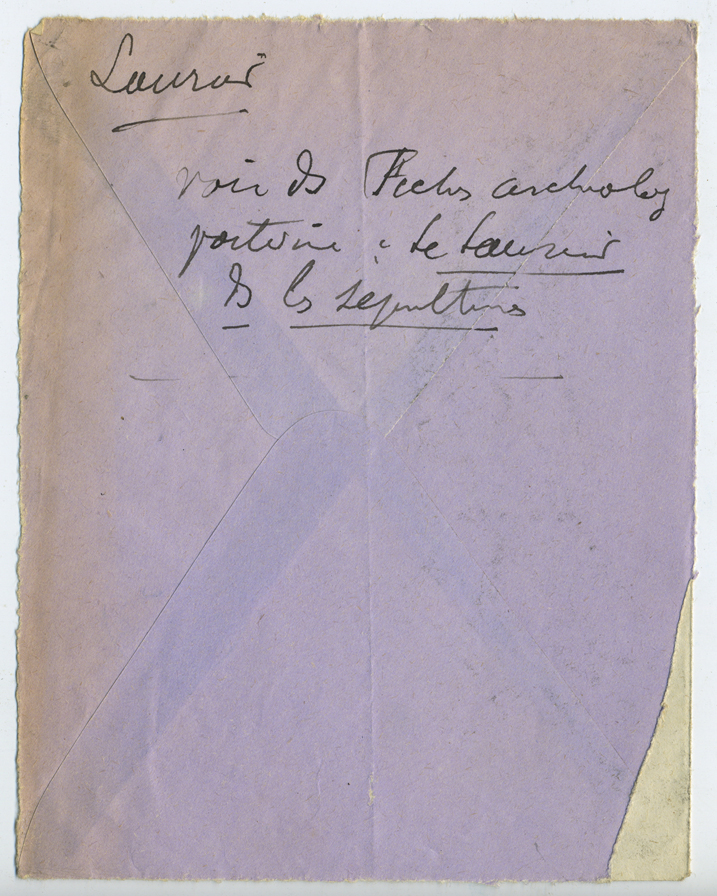 Laurier
voir ds Fiches archeolog
poitevine : Le Laurier
ds les sepultures